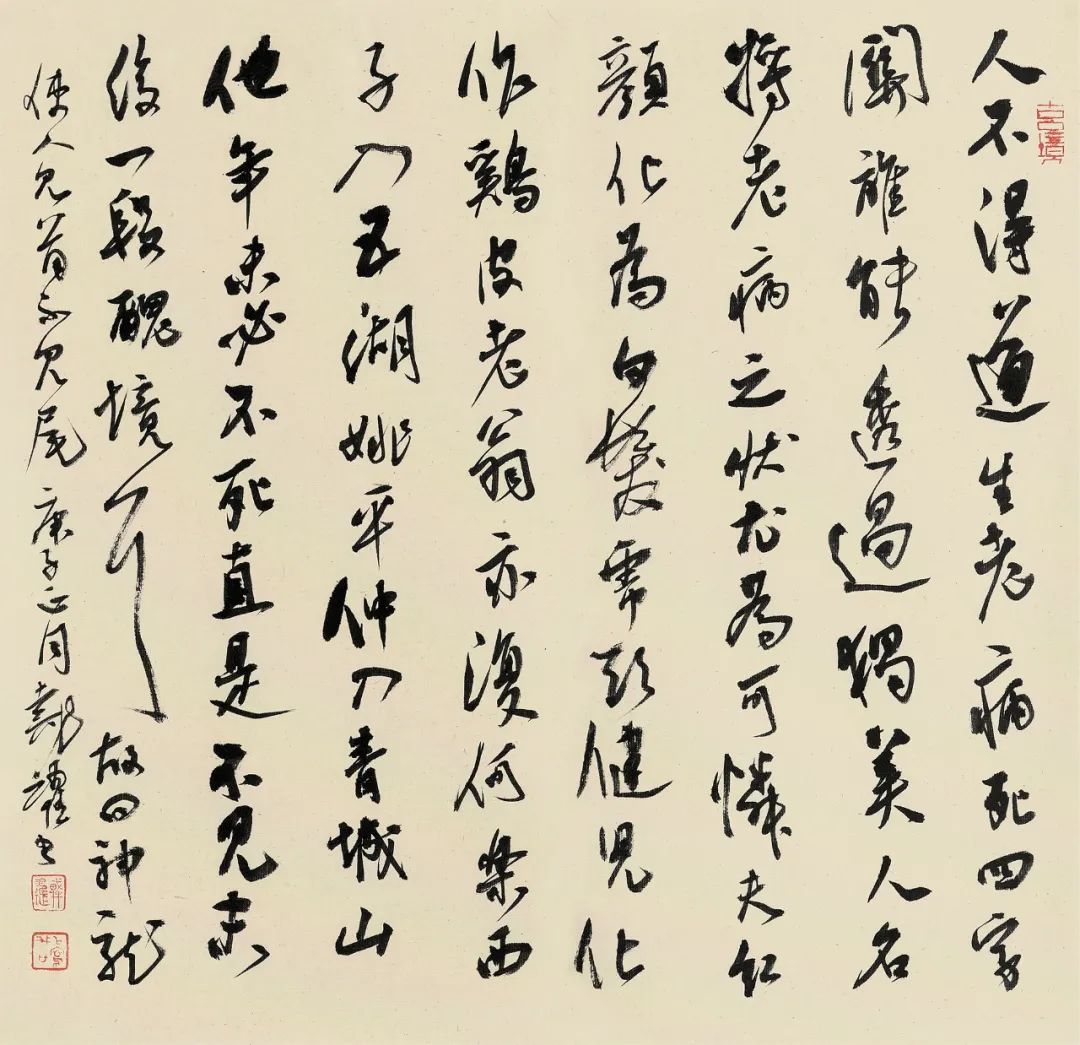 人不得道生老病死四字
關誰能透過獨美人名
將老病之狀尤為可憐夫紅
顏化為白髮虎頭健兒化
作鷄皮老翁亦復何樂西
子入五湖姚平仲入青城山
他年未必不死直是不見末
後一段醜境耳故曰神龍
使人見首不見尾 庚子正月戴躍書